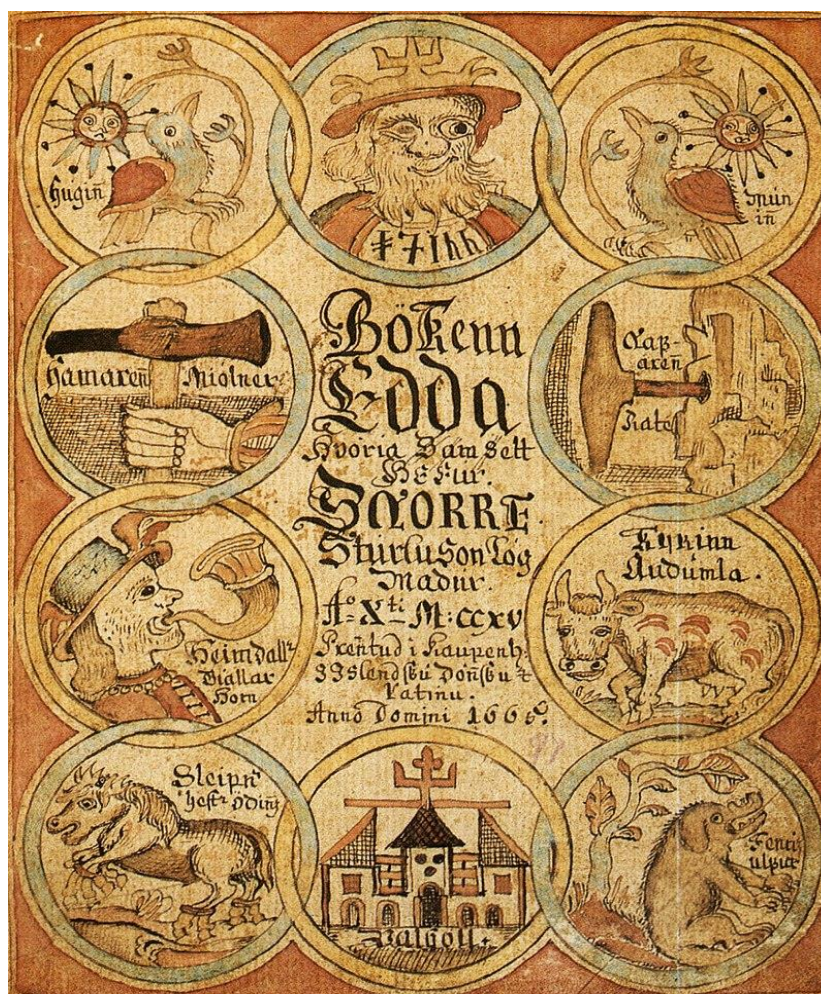 Hugiñ
Muninñ
Hamareñ Miolner
Naf-
areñ
Rate
Bökenn
Edda
Hvöria Samsett
Hefur
SNORRE
Sturluson Lög
Madur.
Aº Xti M:ccxv
Prentud i Kaupenh:
Islendsku Donsku &
Latinu.
Anno Domini 1665.
Heimdallr
Giallar
Horn
Kyrinn
Audumla.
Sleipnr
hestr Odins
Valholl.
Fenris
ulfur